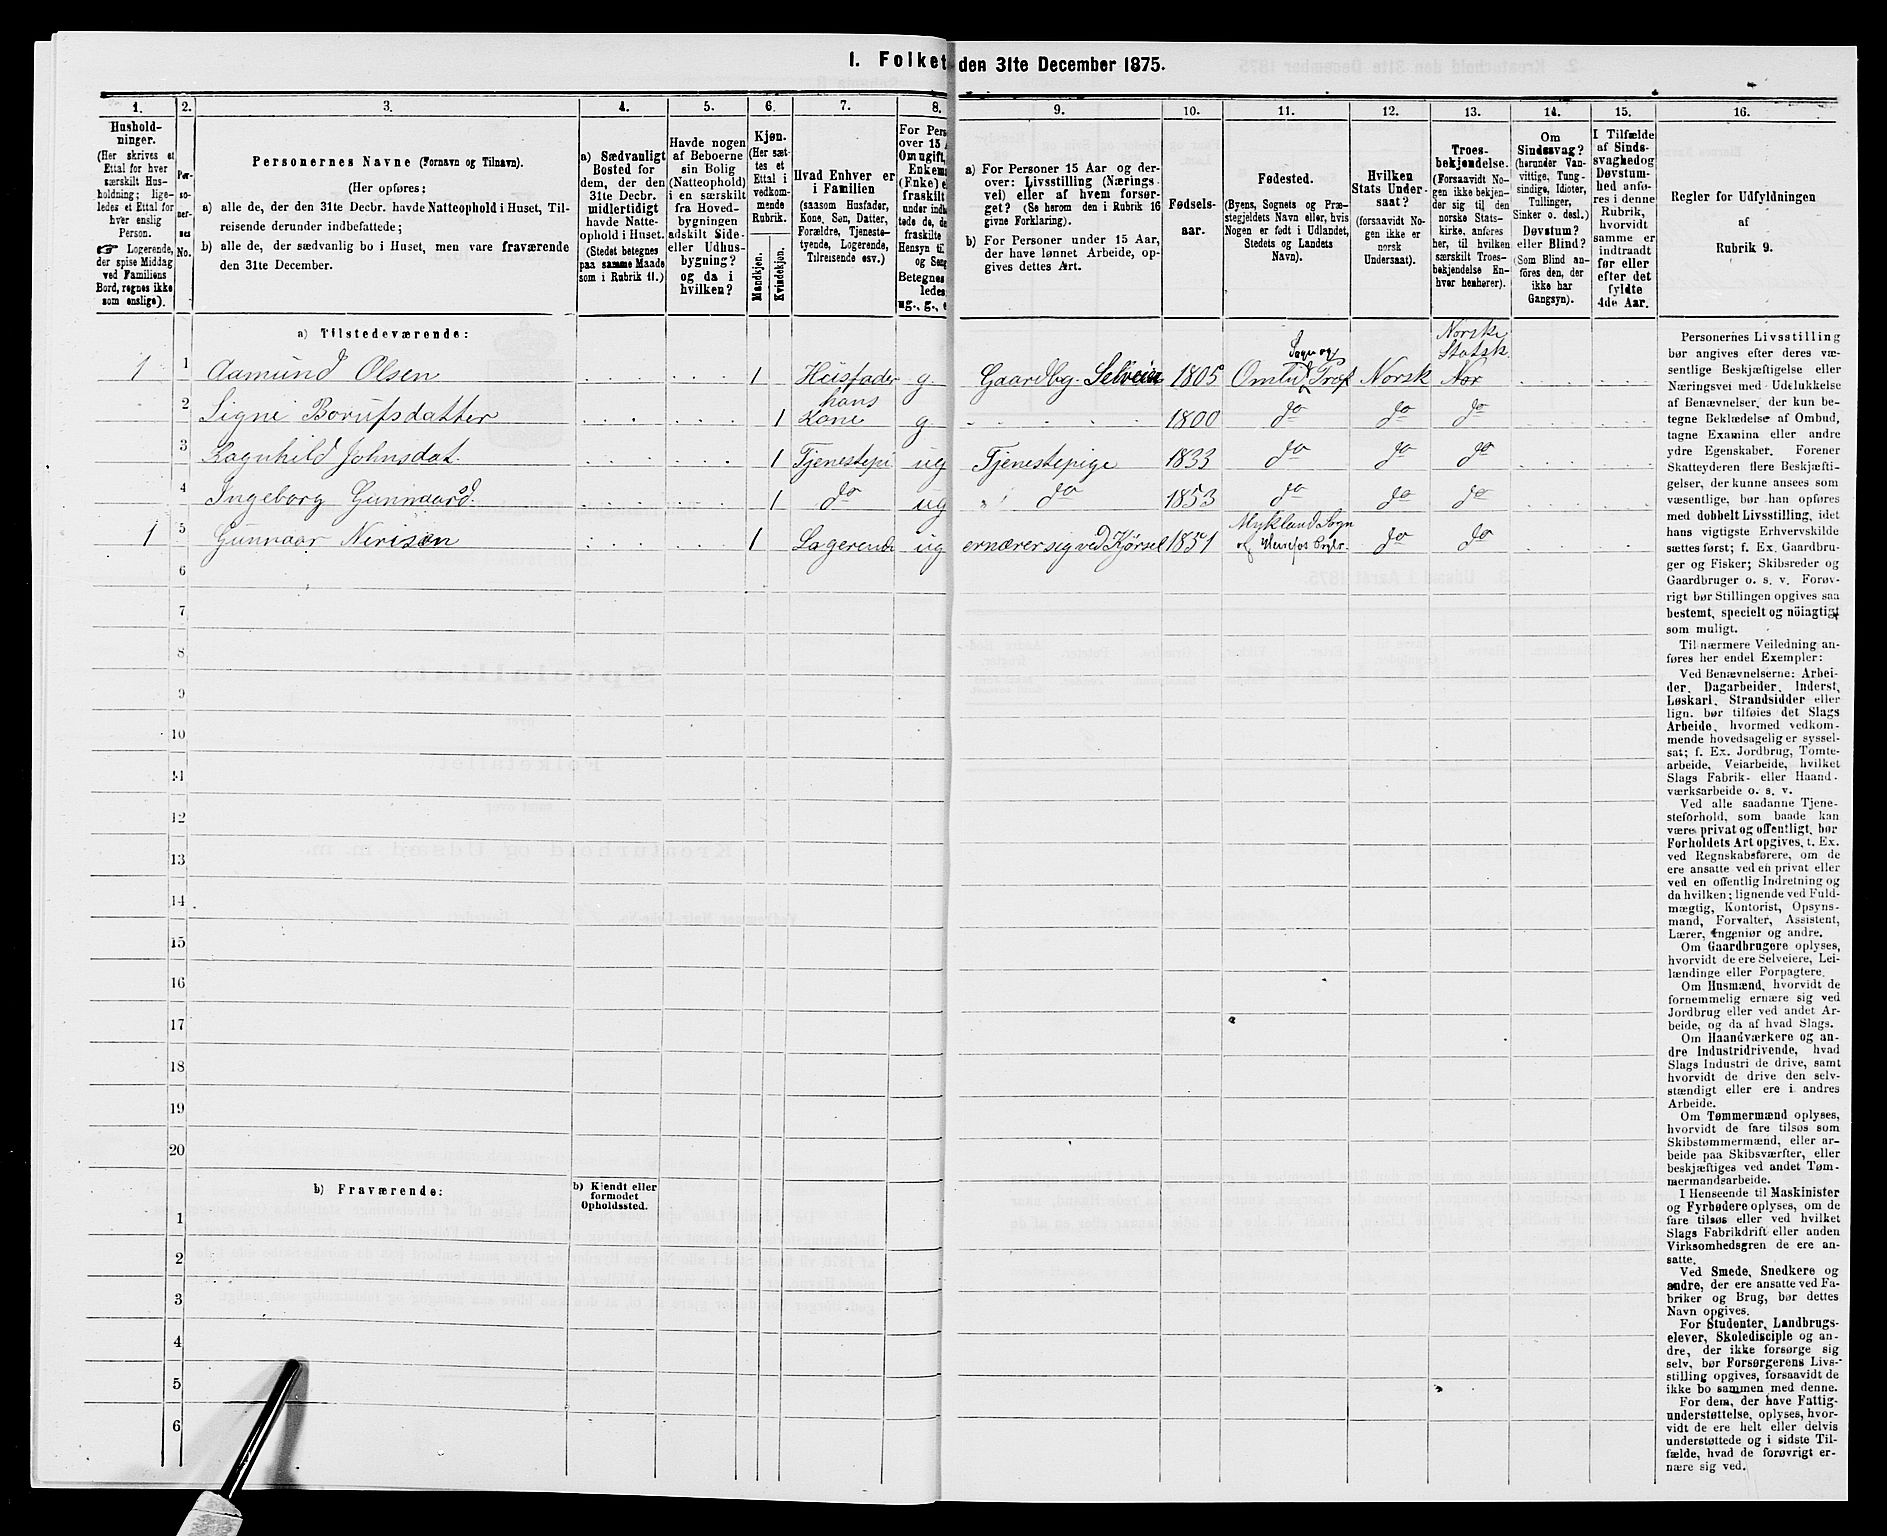 1. Folket den 31te December 1875.
1. 2. 3. 4. 5. 6. 7. 8. 9. 10. 11. 12. 13. 14. 15. 16.
Hushold-
ninger.
(Her skrives et
Ettal for hver
særskilt Hus-
holdning; lige-
ledes et Ettal for
hver enslig
Person.
☛ Logerende,
der spise Middag
ved Familiens
Bord, regnes ikke
som enslige).
Per-
so-
ner-
nes
No.
Personernes Navne (Fornavn og Tilnavn).
(Her opføres:
a) alle de, der den 31te Decbr. havde Natteophold i Huset, Til-
reisende derunder indbefattede;
b) alle de, der sædvanlig bo i Huset, men vare fraværende
den 31te December.
a) Sædvanligt
Bosted for
dem, der den
31te Decbr.
midlertidigt
havde Natte-
ophold i Huset.
(Stedet betegnes
paa samme Maade
som i Rubrik 11.)
Havde nogen
af Beboerne
sin Bolig
(Natteophold)
i en særskilt
fra Hoved-
bygningen
adskilt Side-
eller Udhus-
bygning?
og da i
hvilken?
Kjøn.
(Her sæt-
tes et
Ettal i
vedkom-
mende
Rubrik.
Mandkjøn.
Kvindekjøn.
Hvad Enhver er
i Familien
(saasom Husfader,
Kone, Søn, Datter,
Forældre, Tjeneste-
tyende, Logerende,
Tilreisende osv.)
For Pers
over 15 A
Om ugift,
Enkem
(Fnke) e
fraskilt
under indb
tede de, d
fraskilte
Hensyn til
og Seng
Betegnes
ledes
ug., g., e
a) For Personer 15 Aar og der-
over: Livsstilling (Nærings-
vei) eller af hvem forsør-
get? (Se herom den i Rubrik 16
givne Forklaring).
b) For Personer under 15 Aar,
der have lønnet Arbeide, op-
gives dettes Art.
Fødsels-
aar.
Fødested.
(Byens, Sognets og Præ-
stegjeldets Navn eller, hvis
Nogen er født i Udlandet,
Stedets og Landets
Navn).
Hvilken
Stats Under-
saat?
(forsaavidt No-
gen ikke er
norsk
Undersaat).
Troes-
bekjendelse.
(Forsaavidt No-
gen ikke bekjen-
der sig til den
norske Stats-
kirke, anføres
her, til hvilken
særskilt Troes-
bekjendelse En-
hver henhører).
Om
Sindssvag?
(herunder Van-
vittige, Tung-
sindige, Idioter,
Tullinger,
Sinker o. desl.)
Døvstum?
eller Blind?
(Som Blind an-
føres den, der
ikke har
Gangsyn).
I Tilfælde
af Sinds-
svaghed og
Døvstum-
hed anfø-
res i denne
Rubrik,
hvorvidt
samme er
indtraadt
før eller
efter det
fyldte
4de Aar.
Regler for Udfyldningen
af
Rubrik 9.
a) Tilstedeværende:
Norske
Statsk.
Sogn og
1 1 Aamund Olsen 1 Husfader g. Gaardbg. Selveier 1805 Omlid Præst Norsk Nor
hans
2 Signe Borufsdatter 1 Kone g 1800 do do do
3 Ragnhild Johnsdat. 1 Tjenestepi ug Tjenestepige 1833 do do do
4 Ingeborg Gunnaarsd. 1 do ug " do 1853 do do do
Mykland Sogn
1 5 Gunnaar Nerisen 1 Logerende ug ernærer sig ved Kjørsel 1851 do do
6
7
8
9
10
11
12
13
14
15
16
17
18
19
20
b) Fraværende:
b) Kjendt eller
formodet
Opholdssted.
1
2
3
4
5
6
Personernes Livsstilling
bør angives efter deres væ-
sentlige Beskjæftigelse eller
Næringsvei med Udelukkelse
af Benævnelser, der kun be-
tegne Beklædelse af Ombud,
tagne Examina eller andre
ydre Egenskaber. Forener
Skatteyderen flere Beskjæfti-
gelser, der kunne ansees som
væsentlige, bør han opføres
med dobbelt Livsstilling, idet
hans vigtigste Erhvervskilde
sættes først; f. Ex. Gaardbru-
ger og Fisker; Skibsreder og
Gaardbruger o. s. v. Forøv-
rigt bør Stillingen opgives saa
bestemt, specielt og nöiagtigt
som muligt.
Til nærmere Veiledning an-
føres her endel Exempler:
Ved Benævnelserne: Arbei-
der, Dagarbeider, Inderst,
Løskarl, Strandsidder eller
lign. bør tilføies det Slags
Arbeide, hvormed vedkom-
mende hovedsagelig er syssel-
sat; f. Ex. Jordbrug, Tomte-
arbeide, Veiarbeide, hvilket
Slags Fabrik- eller Haand-
værksarbeide o. s. v.
Ved alle saadanne Tjene-
steforhold, som baade kan
være privat og offentligt, bør
Forholdets Art opgives, t. Ex.
ved Regnskabsførere, om de
ere ansatte ved en privat eller
ved en offentlig Indretning og
da hvilken; lignende ved Fuld-
mægtig, Kontorist, Opsyns-
mand, Forvalter, Assistent,
Lærer, Ingeniør og andre.
Om Gaardbrugere oplyses,
hvorvidt de ere Selveiere, Lei-
lændinge eller Forpagtere.
Om Husmænd, hvorvidt de
fornemmelig ernære sig ved
Jordbrug eller ved andet Ar-
beide, og da af hvad Slags.
Om Haandværkere og an-
dre Industridrivende, hvad
Slags Industri de drive, samt
hvorvidt de drive den selv-
stændigt eller ere i andres
Arbeide.
Om Tømmermænd oplyses,
hvorvidt de fare tilsøs som
Skibstømmermænd, eller ar-
beide paa Skibsværfter, eller
beskjæftiges ved andet Tøm-
mermandsarbeide.
I Henseende til Maskinister
og Fyrbødere oplyses, om de
fare tilsøs eller ved hvilket
Slags Fabrikdrift eller anden
Virksomhedsgren de ere an-
satte.
Ved Smede, Snedkere og
andre, der ere ansatte ved Fa-
briker og Brug, bør dettes
Navn opgives.
For Studenter, Landbrugs-
elever, Skoledisciple og an-
dre, der ikke forsørge sig
selv, bør Forsørgerens Livs-
stilling opgives, forsaavidt de
ikke bo sammen med denne.
For dem, der have Fattig-
understøttelse, oplyses, hvor-
vidt de ere helt eller delvis
understøttede og i sidste Til-
fælde, hvad de forøvrigt er-
nære sig ved.